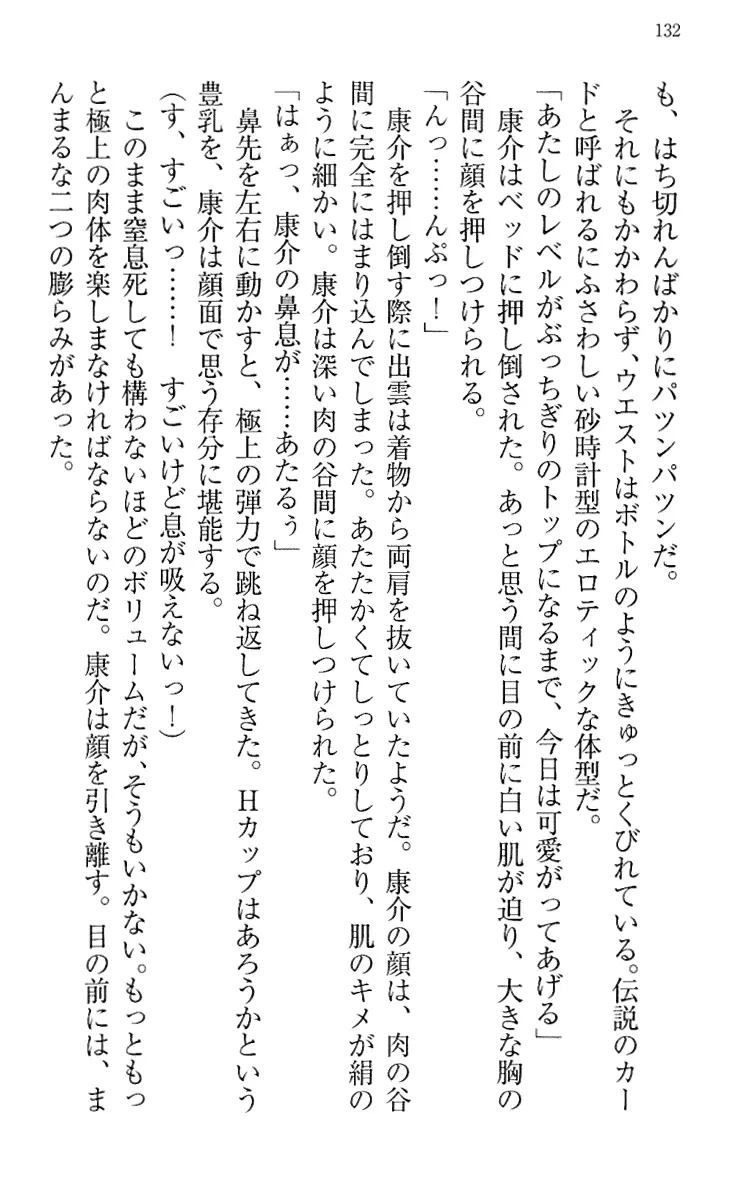 132
も、はち切れんばかりにパツンパツンだ。
それにもかかわらず、ウエストはボトルのようにきゅっとくびれている。伝説のカー
ドと呼ばれるにふさわしい砂時計型のエロティックな体型だ。
「あたしのレベルがぶっちぎりのトップになるまで、今日は可愛がってあげる」
康介はベッドに押し倒された。あっと思う間に目の前に白い肌が迫り、大きな胸の
谷間に顔を押しつけられる。
「んっ……んぷっ！」
康介を押し倒す際に出雲は着物から両肩を抜いていたようだ。康介の顔は、肉の谷
間に完全にはまり込んでしまった。あたたかくてしっとりしており、肌のキメが絹の
ように細かい。康介は深い肉の谷間に顔を押しつけられた。
「はぁっ、康介の鼻息が……あたるぅ」
鼻先を左右に動かすと、極上の弾力で跳ね返してきた。Ｈカップはあろうかという
豊乳を、康介は顔面で思う存分に堪能する。
（す、すごいっ……！　すごいけど息が吸えないっ！）
このまま窒息死しても構わないほどのボリュームだが、そうもいかない。もっともっ
と極上の肉体を楽しまなければならないのだ。康介は顔を引き離す。目の前には、ま
んまるな二つの膨らみがあった。